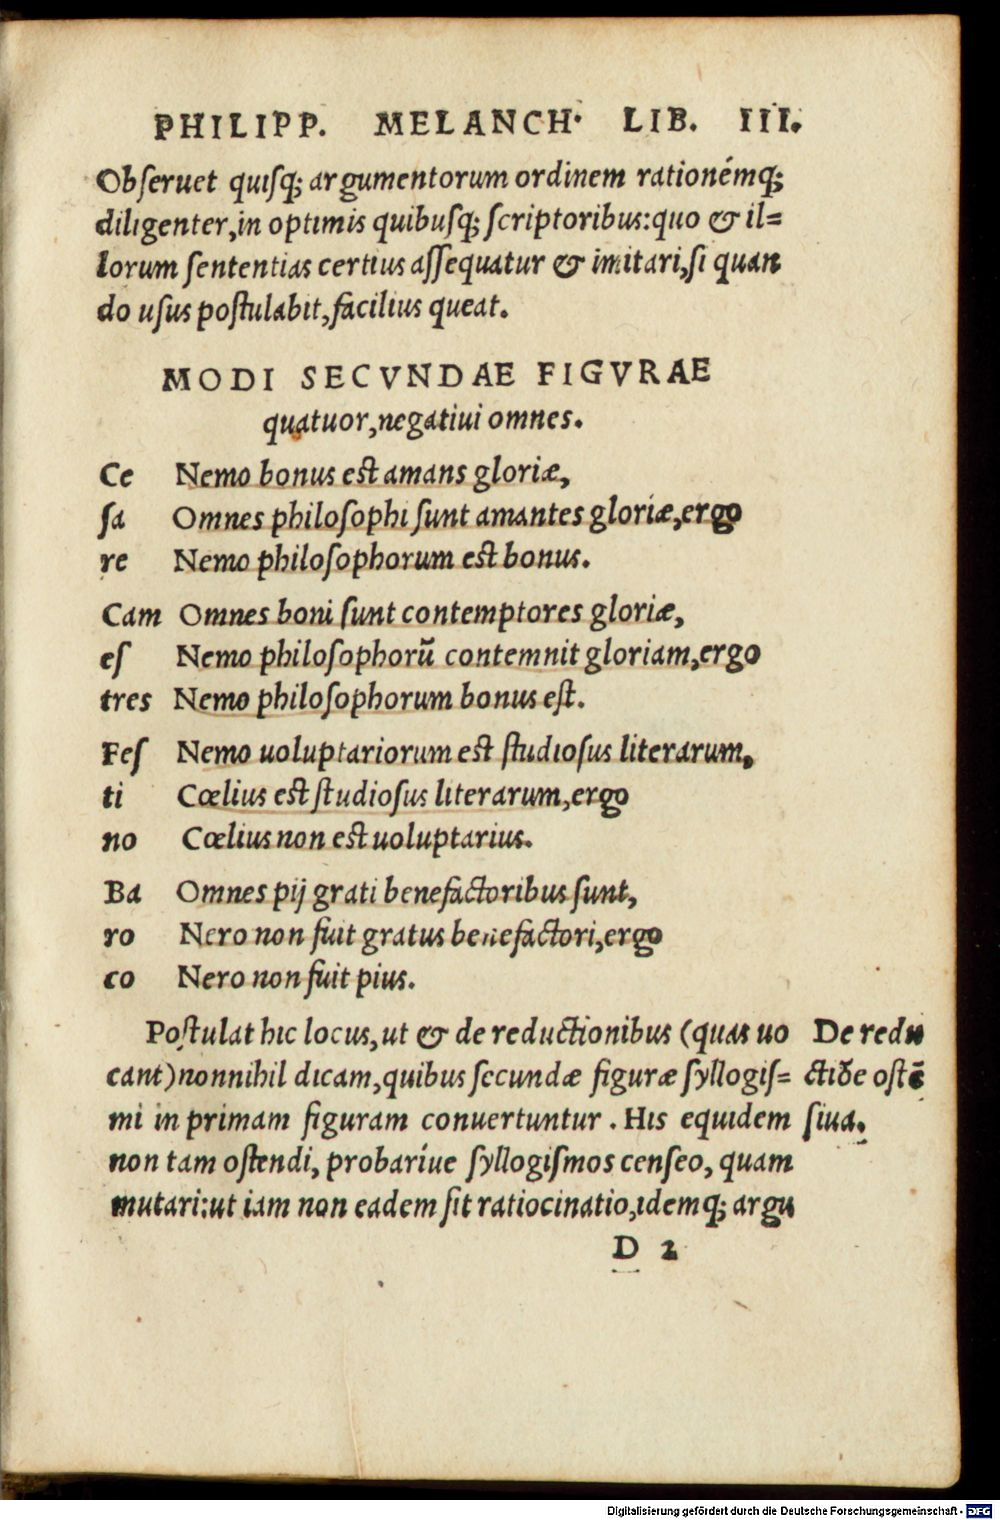 PHILIPP. MELANCH. LIB. III.
Obſeruet quiſq; argumentorum ordinem rationémq;
diligenter,in optimis quibuſq; ſcriptoribus:quo & il=
lorum ſententias certius aſſequatur & imitari,ſi quan
do uſus poſtulabit,facilius queat.
MODI SECVNDAE FIGVRAE
quatuor,negatiui omnes.
Ce Nemo bonus est amans gloriæ,
ſa Omnes philoſophi ſunt amantes gloriæ,ergo
re Nemo philoſophorum est bonus.
Cam Omnes boni ſunt contemptores gloriæ,
eſ Nemo philoſophorũ contemnit gloriam,ergo
tres Nemo philoſophorum bonus eſt.
Feſ Nemo uoluptariorum est ſtudioſus literarum,
ti Cœlius est ſtudioſus literarum,ergo
no Cœlius non est uoluptarius.
Ba Omnes pij grati benefactoribus ſunt,
ro Nero non fuit gratus benefactori,ergo
co Nero non fuit pius.
Poſtulat hic locus,ut & de reductionibus (quas uo
cant)nonnihil dicam,quibus ſecundæ figuræ ſyllogiſ=
mi in primam figuram conuertuntur. His equidem
non tam oſtendi, probaríue ſyllogiſmos cenſeo, quam
mutari:ut iam non eadem ſit ratiocinatio,idemq; argu
De redu
ctiõe oſtẽ
ſiua.
D 2
Digitalisierung gefördert durch die Deutsche Forschungsgemeinschaft - DFG